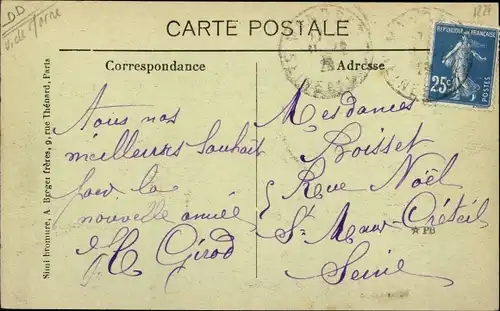 DD
CARTE POSTALE
RÉPUBLIQUE FRANÇAISE
25c
POSTES
Correspondance
Adresse
Tous nos
meilleures Souhait
pour la
nouvelle année
H Girod
Mesdames
Boisset
Rue Noël
St Maur Créteil
Seine
★ PB
Simi-bromure, A Breger frères, 9, rue Thénard, Paris